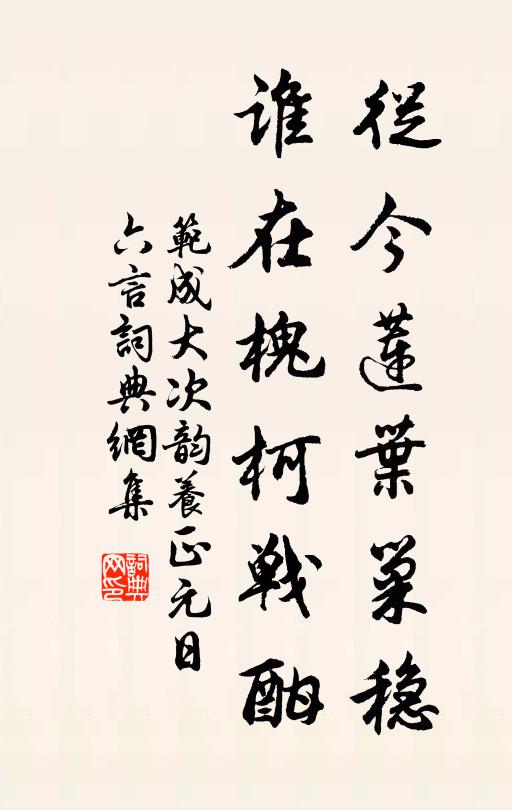 從今蓮葉巢穩
谁在槐柯戰酣
範成大次韵養正元日
六言詞典網集
詞典
网印